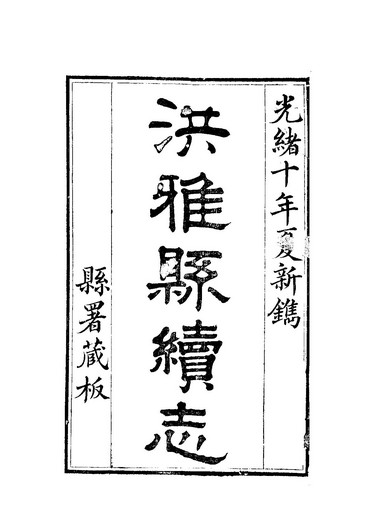 光緒十年夏新鐫
洪雅縣續志
縣署藏板